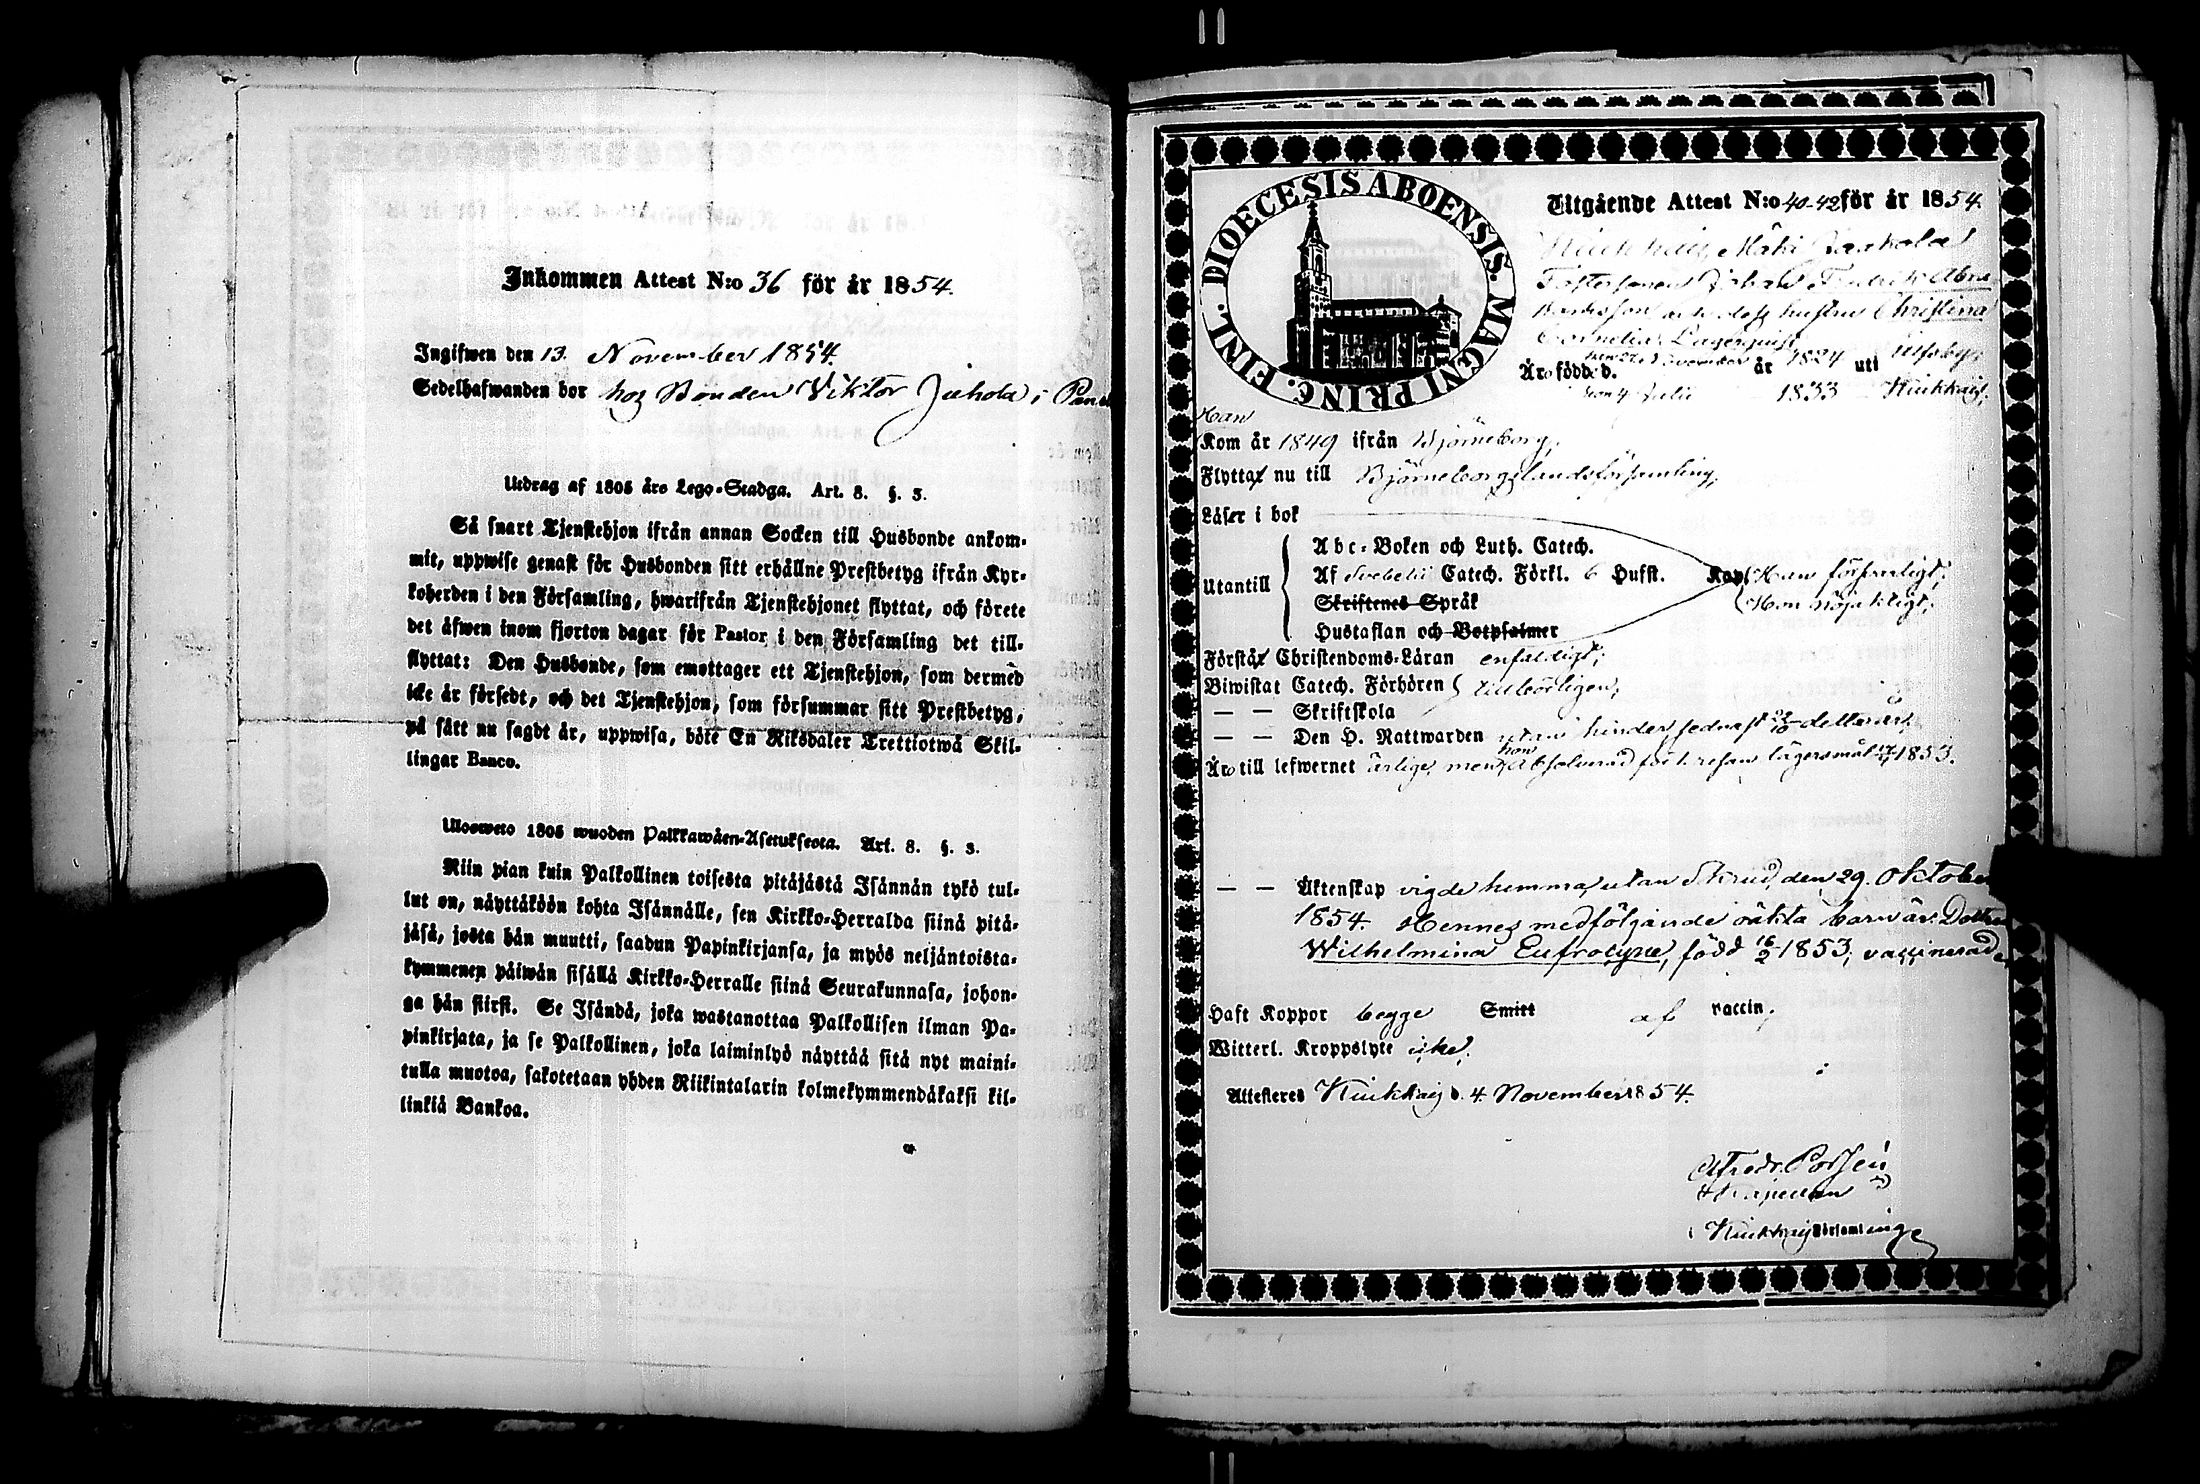 Inkommen Attest N:o 36 för år 1854.
Ingifwen den 13. November 1854.
Sedelhafwanden bor hos Bonden Viktor Juhola i
Utdrag af 1805 års Lego-Stadga. Art. 8. §. 3.
Så snart Tjenstehjon ifrån annan Socken till Husbonde ankom-
mit, uppwise genast för Husbonden sitt erhållne Prestbetyg ifrån Kyr-
koherden i den Församling, hwarifrån Tjenstehjonet flyttat, och förete
det äfwen inom fjorton dagar för Pastor i den Församling det till-
flyttat: Den Husbonde, som emottager ett Tjenstehjon, som dermed
icke är försedt, och det Tjenstehjon, som försummar sitt Prestbetyg,
på sätt nu sagdt är, uppwisa, böte En Riksdaler Trettiotwå Skil-
lingar Banco.
Ulosweto 1805 wuoden Palkkawäen-Asetuksesta. Art. 8. §. 3.
Niin pian kuin Palkollinen toisesta pitäjästä Isännän tykö tul-
lut on, näyttäköön kohta Isännälle, sen Kirkko-Herralda siinä pitä-
jäsä, josta hän muutti, saadun Papinkirjansa, ja myös neljäntoista-
kymmenen päiwän sisällä Kirkko-Herralle siinä Seurakunnasa, johon-
ga hän siirsi. Se Isändä, joka wastanottaa Palkollisen ilman Pa-
pinkirjata, ja se Palkollinen, joka laiminlyö näyttää sitä nyt maini-
tulla muotoa, sakotetaan yhden Riikintalarin kolmekymmendäkaksi kil-
linkiä Bankoa.
DIOECESIS ABOENSIS. MAGNI PRINC. FINL.
Utgående Attest N:o 40-42 för år 1854.
Mäki
Fostersonen Johan Fredrik
och dess hustru Christina
Cornelia Lagerquist
Äro född d. November år 1824 uti Ulfsby
den 4 Julii 1833 Kiukkais,
Han
Kom år 1849 ifrån Björneborg,
Flytta nu till Björneborgs landsförsamling,
Läser i bok
Abc-Boken och Luth. Catech.
Utantill Af Svebelii Catech. Förkl. 6 Hufst. Han försvarligt,
Skriftenes Språk Hon nöjaktigt,
Hustaflan och Botpsalmer
Förstå Christendoms-Läran enfaldigt,
Biwistat Catech. Förhören tillbörligen,
— — Skriftskola
— — Den H. Nattwarden utan hinder sednast detta år,
hon
Äro till lefwernet ärlige, men absolverad för lägersmål 1853.
— — Äktenskap vigde hemma utan Skrud, den 29. Oktober
1854. Hennes medföljande oäkta barn är: Dottren
Wilhelmina Eufrosyne, född 16/2 1853, vaccinerad
Haft Koppor begge Smitt af vaccin,
Witterl. Kroppslyte icke,
Attesteres Kiukkais d. 4. November 1854.
Alfredr. Polén
Kapellan
Kiukkais Församling